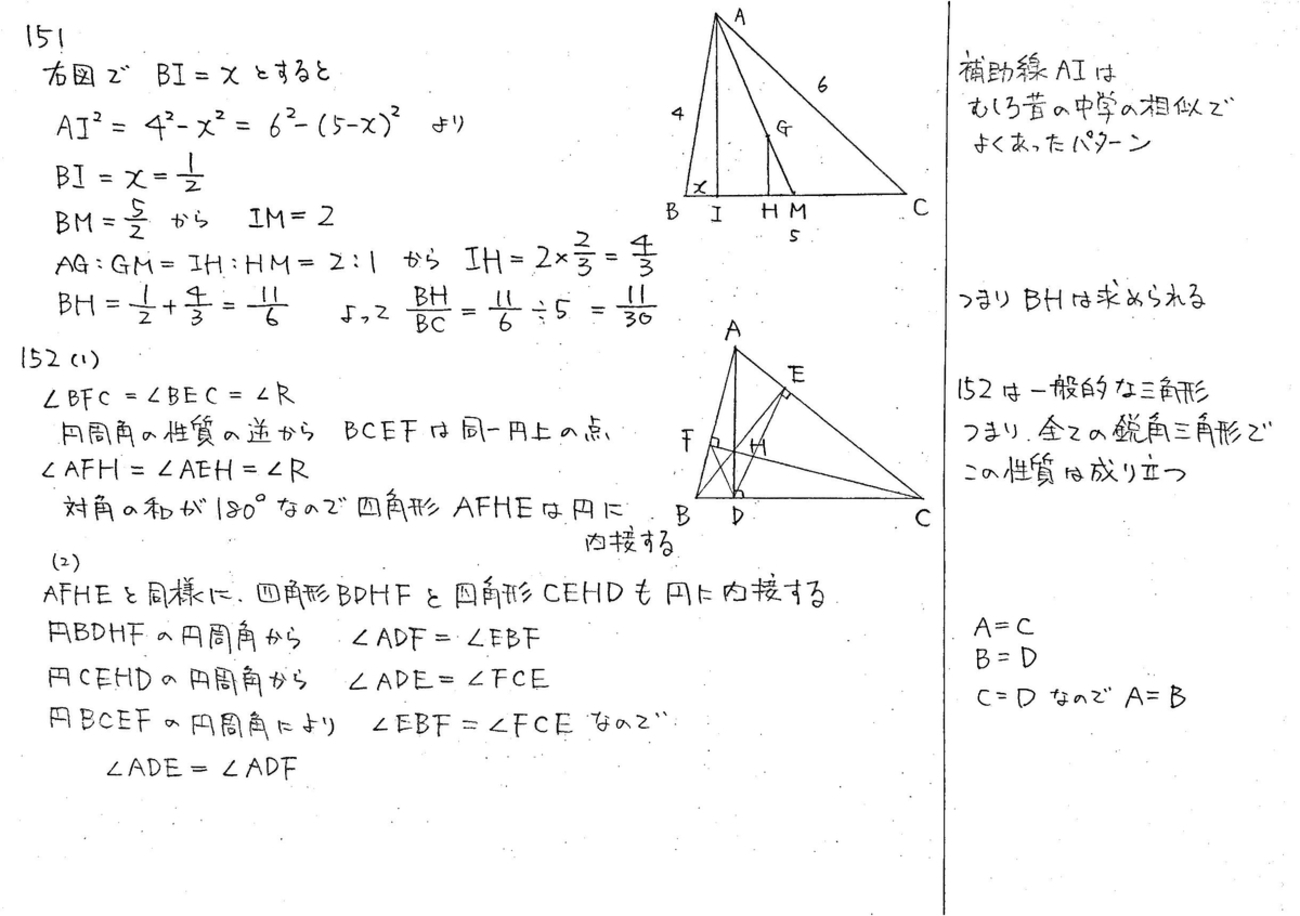 151
右図で BI = x とすると
AI² = 4² - x² = 6² - (5-x)² より
BI = x = 1/2
BM = 5/2 から IM = 2
AG : GM = IH : HM = 2 : 1 から IH = 2 × 2/3 = 4/3
BH = 1/2 + 4/3 = 11/6 よって BH/BC = 11/6 ÷ 5 = 11/30
A
4
6
G
x
B
I
H
M
C
5
補助線 AI は
むしろ昔の中学の相似で
よくあったパターン
つまり BH は求められる
152 (1)
∠BFC = ∠BEC = ∠R
円周角の性質の逆から BCEF は同一円上の点
∠AFH = ∠AEH = ∠R
対角の和が180°なので四角形 AFHE は円に
内接する
A
E
F
H
B
D
C
152 は一般的な三角形
つまり、全ての鋭角三角形で
この性質は成り立つ
(2)
AFHE と同様に、四角形 BDHF と四角形 CEHD も円に内接する
円BDHF の円周角から ∠ADF = ∠EBF
円CEHD の円周角から ∠ADE = ∠FCE
円BCEF の円周角により ∠EBF = ∠FCE なので
∠ADE = ∠ADF
A = C
B = D
C = D なので A = B